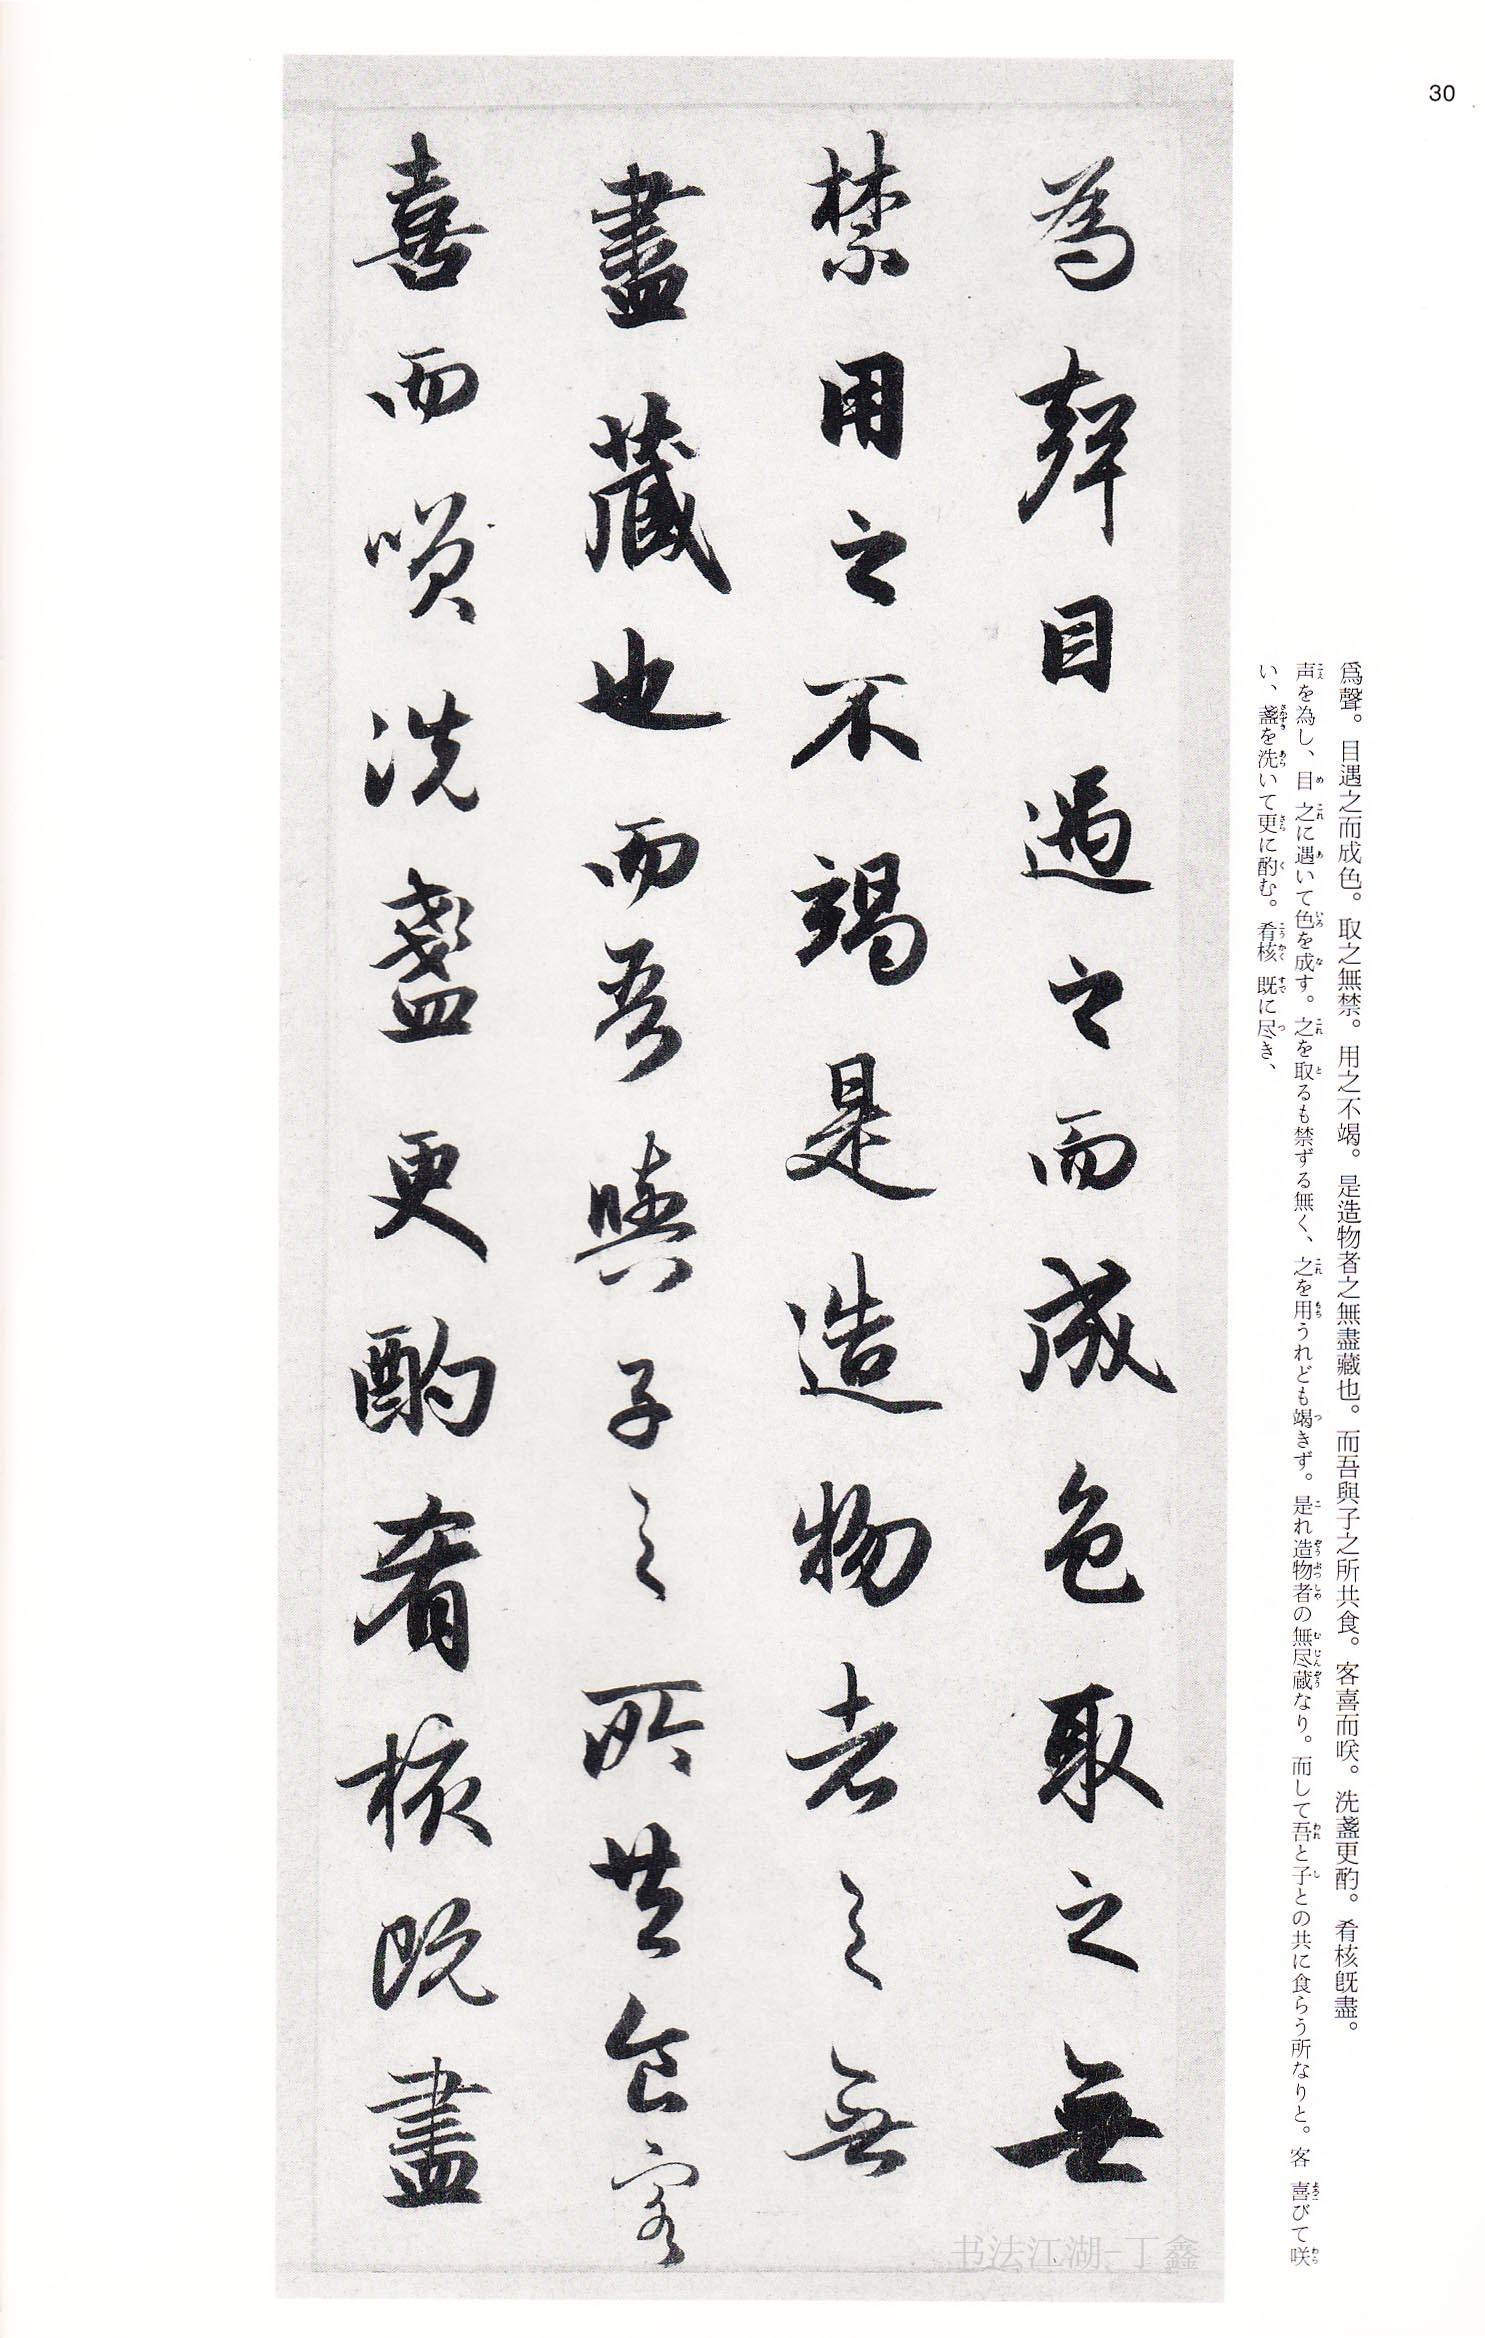 30
爲聲。目遇之而成色。取之無禁。用之不竭。是造物者之無盡藏也。而吾與子之所共食。客喜而咲。洗盞更酌。肴核既盡。
声を為し、目之に遇いて色を成す。之を取るも禁ずる無く、之を用うれども竭きず。是れ造物者の無尽蔵なり。而して吾と子との共に食らう所なりと。客喜びて咲
い、盞を洗いて更に酌む。肴核既に尽き、
為聲目遇之而成色取之無
禁用之不竭是造物者之無
盡藏也而吾與子之所共食客
喜而咲洗盞更酌肴核既盡
书法江湖-丁鑫